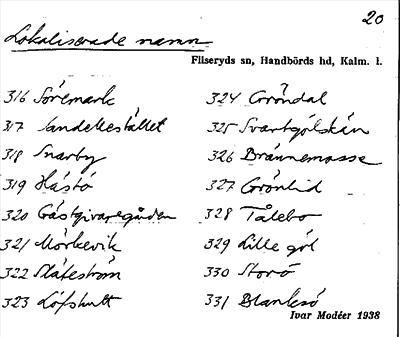 20
Lokaliserade namn
Fliseryds sn, Handbörds hd, Kalm. l.
316 Söremark
317 Sandellestället
318 Snarby
319 Hästö
320 Gästgivaregården
321 Mörkevik
322 Släteström
323 Löfshult
324 Gröndal
325 Svartgölskärr
326 Brännemosse
327 Grönlid
328 Tålebo
329 Lille göl
330 Storö
331 Blanksö
Ivar Modéer 1938